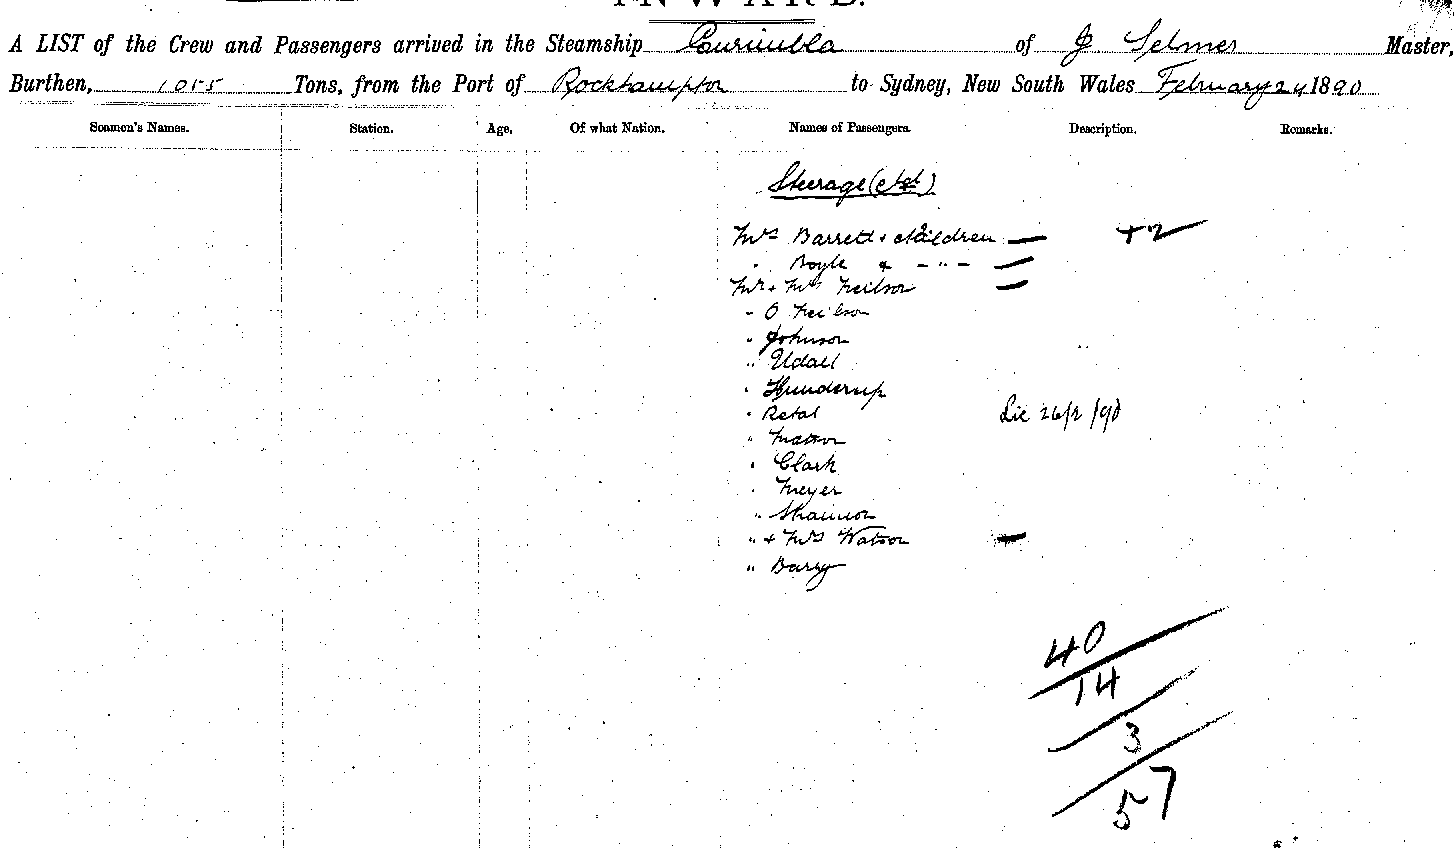 INWARD.
A LIST of the Crew and Passengers arrived in the Steamship Courimbla of J Selmes Master,
Burthen, 1055 Tons, from the Port of Rockhampton to Sydney, New South Wales February 24 1890
Seamen's Names. Station. Age, Of what Nation. Names of Passengers. Description. Remarks.
Steerage (ctd)
Mrs Barrett & children — +2
" Boyle & - " - —
Mr & Mrs Neilson =
" O Neilson
" Johnson
" Udall
" Hunderup
" Retal Lic 26/2/90
" Matson
" Clark
" Meyer
" Shannon
" & Mrs Watson —
" Barry
40
14
3
57